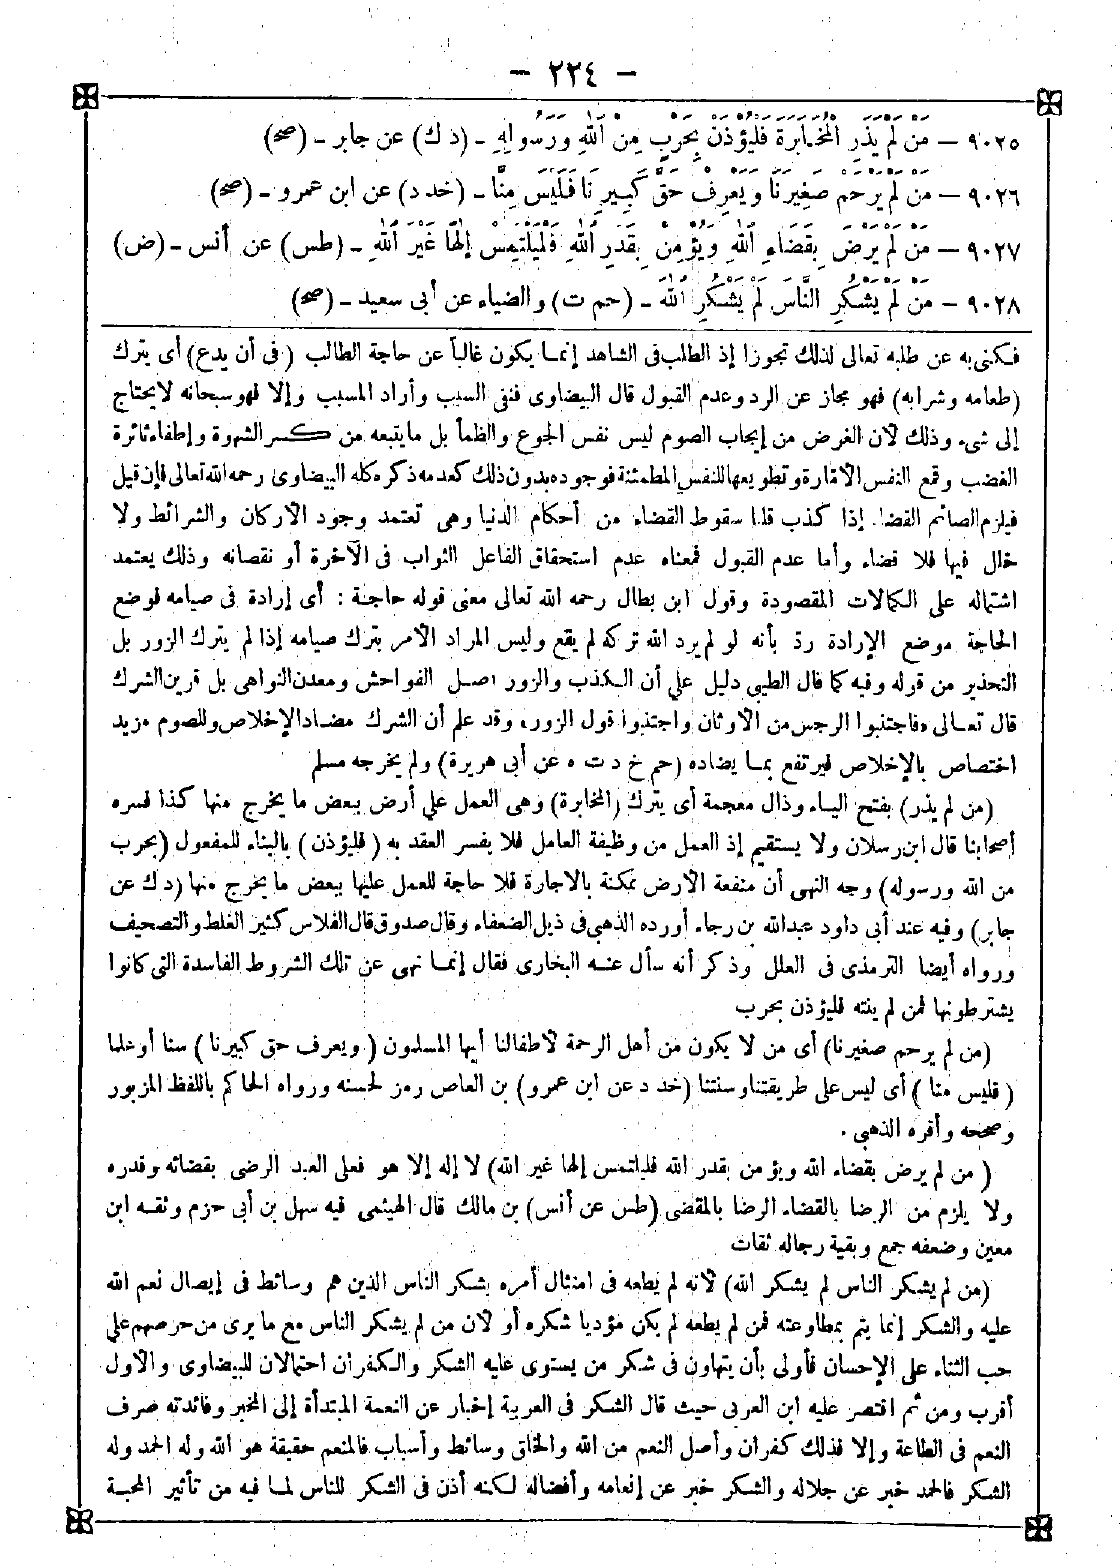 – ٢٢٤ –
٩٠٢٥ – مَنْ لَمْ يَذَرِ الْمُخَابَرَةَ فَلْيُؤْذَنْ بِحَرْبٍ مِنَ اللّٰهِ وَرَسُولِهِ – (د ك) عن جابر – (صح)
٩٠٢٦ – مَنْ لَمْ يَرْحَمْ صَغِيرَنَا وَيَعْرِفْ حَقَّ كَبِيرِنَا فَلَيْسَ مِنَّا – (خد د) عن ابن عمرو – (صح)
٩٠٢٧ – مَنْ لَمْ يَرْضَ بِقَضَاءِ اللّٰهِ وَيُؤْمِنْ بِقَدَرِ اللّٰهِ فَلْيَلْتَمِسْ إِلٰهًا غَيْرَ اللّٰهِ – (طس) عن أنس – (ض)
٩٠٢٨ – مَنْ لَمْ يَشْكُرِ النَّاسَ لَمْ يَشْكُرِ اللّٰهَ – (حم ت) والضياء عن أبى سعيد – (صح)
فكنى به عن طلبه تعالى لذلك تجوزا إذ الطلب فى الشاهد إنما يكون غالباً عن حاجة الطالب (فى أن يدع) أى يترك
(طعامه وشرابه) فهو مجاز عن الرد وعدم القبول قال البيضاوى فنفى السبب وأراد المسبب وإلا فهو سبحانه لا يحتاج
إلى شىء وذلك لأن الغرض من إيجاب الصوم ليس نفس الجوع والظمأ بل ما يتبعه من كسر الشهوة وإطفاء ثائرة
الغضب وقمع النفس الأمّارة وتطويعها للنفس المطمئنة فوجوده بدون ذلك كعدمه ذكره كله البيضاوى رحمه الله تعالى فإن قيل
فيلزم الصائم القضاء إذا كذب قلنا سقوط القضاء من أحكام الدنيا وهى تعتمد وجود الأركان والشرائط ولا
خال فيها فلا قضاء وأما عدم القبول فمعناه عدم استحقاق الفاعل الثواب فى الآخرة أو نقصانه وذلك يعتمد
اشتماله على الكمالات المقصودة وقول ابن بطال رحمه الله تعالى معنى قوله حاجة : أى إرادة فى صيامه فوضع
الحاجة موضع الإرادة ردّ بأنه لو لم يرد الله تركه لم يقع وليس المراد الأمر بترك صيامه إذا لم يترك الزور بل
التحذير من قوله وفيه كما قال الطيبى دليل على أن الكذب والزور أصل الفواحش ومعدن النواهى بل قرين الشرك
قال تعالى «فاجتنبوا الرجس من الأوثان واجتنبوا قول الزور» وقد علم أن الشرك مضاد الإخلاص وللصوم مزيد
اختصاص بالإخلاص فيرتفع بما يضاده (حم خ د ت ه عن أبى هريرة) ولم يخرجه مسلم
(من لم يذر) بفتح الياء وذال معجمة أى يترك (المخابرة) وهى العمل على أرض ببعض ما يخرج منها كذا فسره
أصحابنا قال ابن رسلان ولا يستقيم إذ العمل من وظيفة العامل فلا يفسر العقد به (فليؤذن) بالبناء للمفعول (بحرب
من الله ورسوله) وجه النهى أن منفعة الأرض ممكنة بالاجارة فلا حاجة للعمل عليها ببعض ما يخرج منها (د ك عن
جابر) وفيه عند أبى داود عبدالله بن رجاء أورده الذهبى فى ذيل الضعفاء وقال صدوق قال الفلاس كثير الغلط والتصحيف
ورواه أيضا الترمذى فى العلل وذكر أنه سأل عنه البخارى فقال إنما نهى عن تلك الشروط الفاسدة التى كانوا
يشترطونها فمن لم ينته فليؤذن بحرب
(من لم يرحم صغيرنا) أى من لا يكون من أهل الرحمة لأطفالنا أيها المسلمون (ويعرف حق كبيرنا) سنا أو علما
(فليس منا) أى ليس على طريقتنا وسنتنا (خد د عن ابن عمرو) بن العاص رمز لحسنه ورواه الحاكم باللفظ المزبور
وصححه وأقره الذهبى .
(من لم يرض بقضاء الله ويؤمن بقدر الله فليلتمس إلها غير الله) لا إله إلا هو فعلى العبد الرضى بقضائه وقدره
ولا يلزم من الرضا بالقضاء الرضا بالمقضى (طس عن أنس) بن مالك قال الهيثمى فيه سهل بن أبى حزم وثقه ابن
معين وضعفه جمع وبقية رجاله ثقات
(من لم يشكر الناس لم يشكر الله) لأنه لم يطعه فى امتثال أمره بشكر الناس الذين هم وسائط فى إيصال نعم الله
عليه والشكر إنما يتم بمطاوعته فمن لم يطعه لم يكن مؤديا شكره أو لأن من لم يشكر الناس مع ما يرى من حرصهم على
حب الثناء على الإحسان فأولى بأن يتهاون فى شكر من يستوى عليه الشكر والكفران احتمالان للبيضاوى والأول
أقرب ومن ثم اقتصر عليه ابن العربى حيث قال الشكر فى العربية إخبار عن النعمة المبتدأة إلى المخبر وفائدته صرف
النعم فى الطاعة وإلا فذلك كفران وأصل النعم من الله والخلق وسائط وأسباب فالمنعم حقيقة هو الله وله الحمد وله
الشكر فالحمد خبر عن جلاله والشكر خبر عن إنعامه وأفضاله لكنه أذن فى الشكر للناس لما فيه من تأثير المحبة